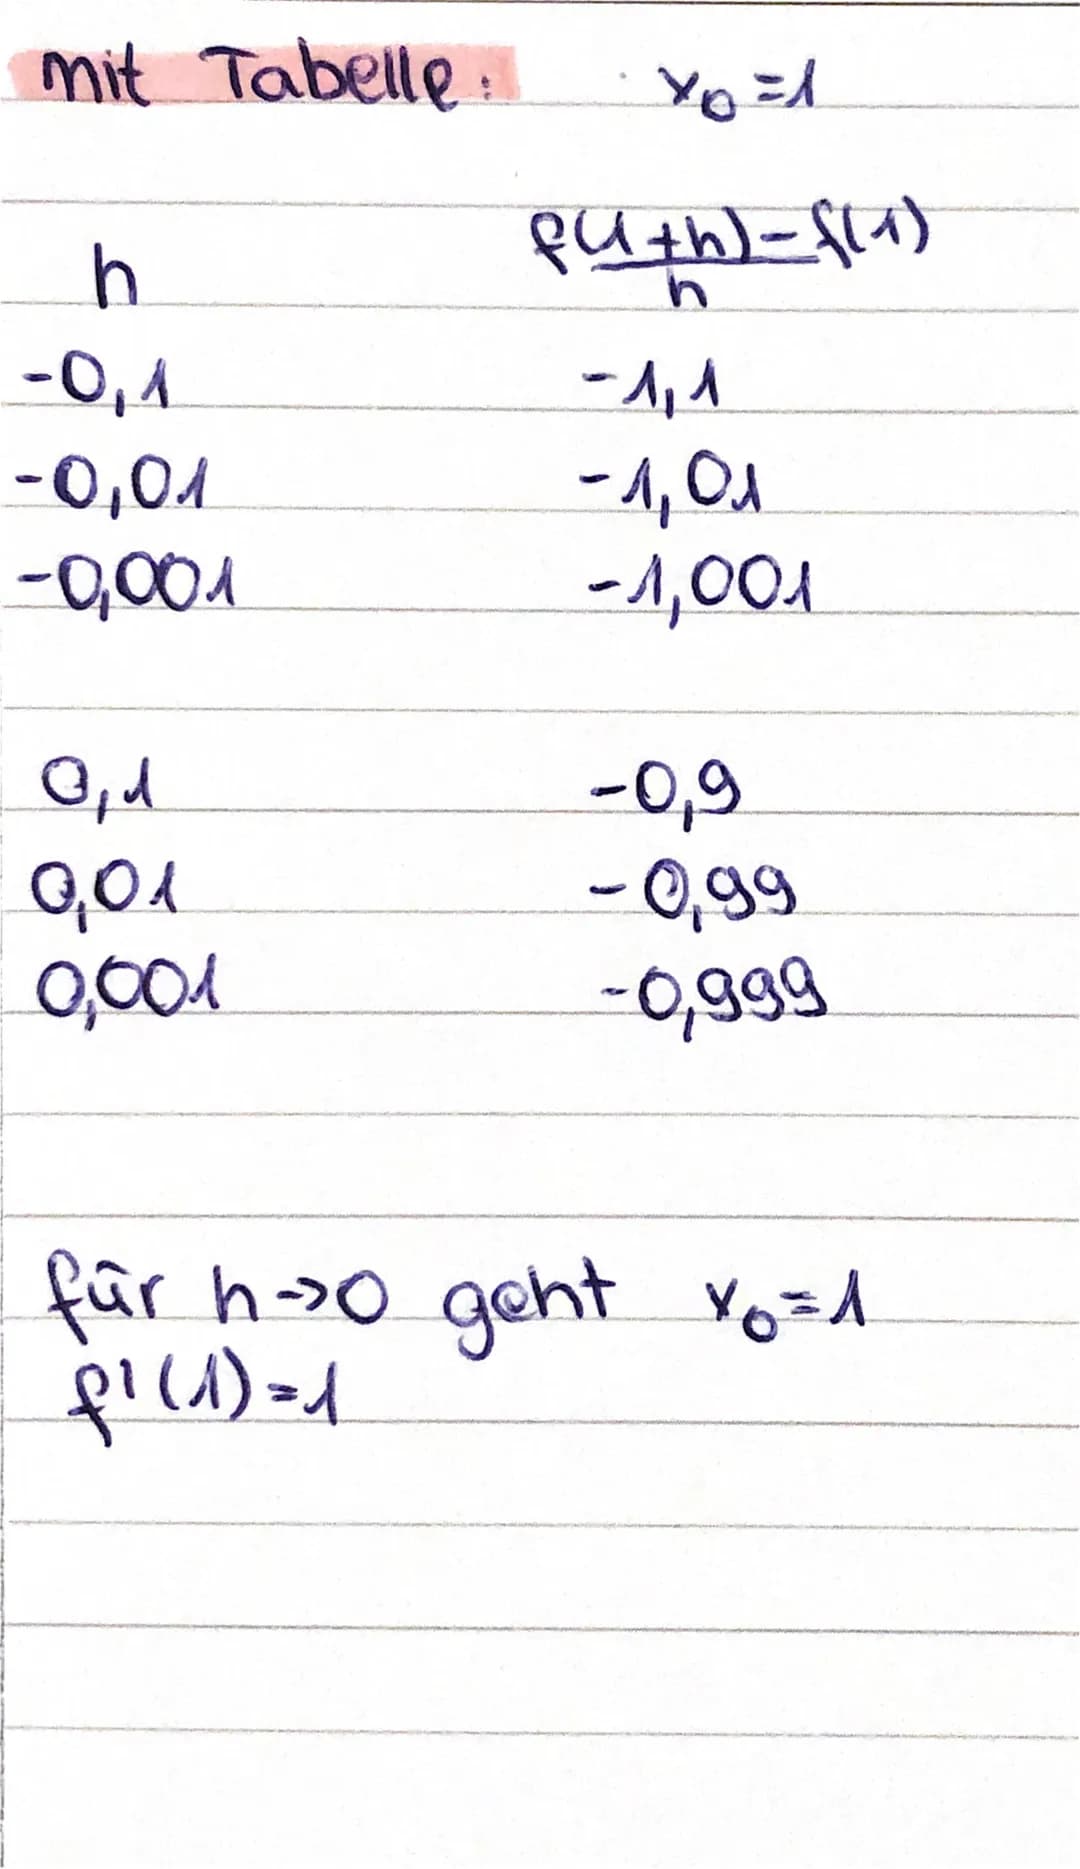 mit Tabelle: x₀=1
h f(1+h)-f(1)/h
-0,1 -1,1
-0,01 -1,01
-0,001 -1,001
0,1 -0,9
0,01 -0,99
0,001 -0,999
für h->0 geht x₀=1
f'(1)=1